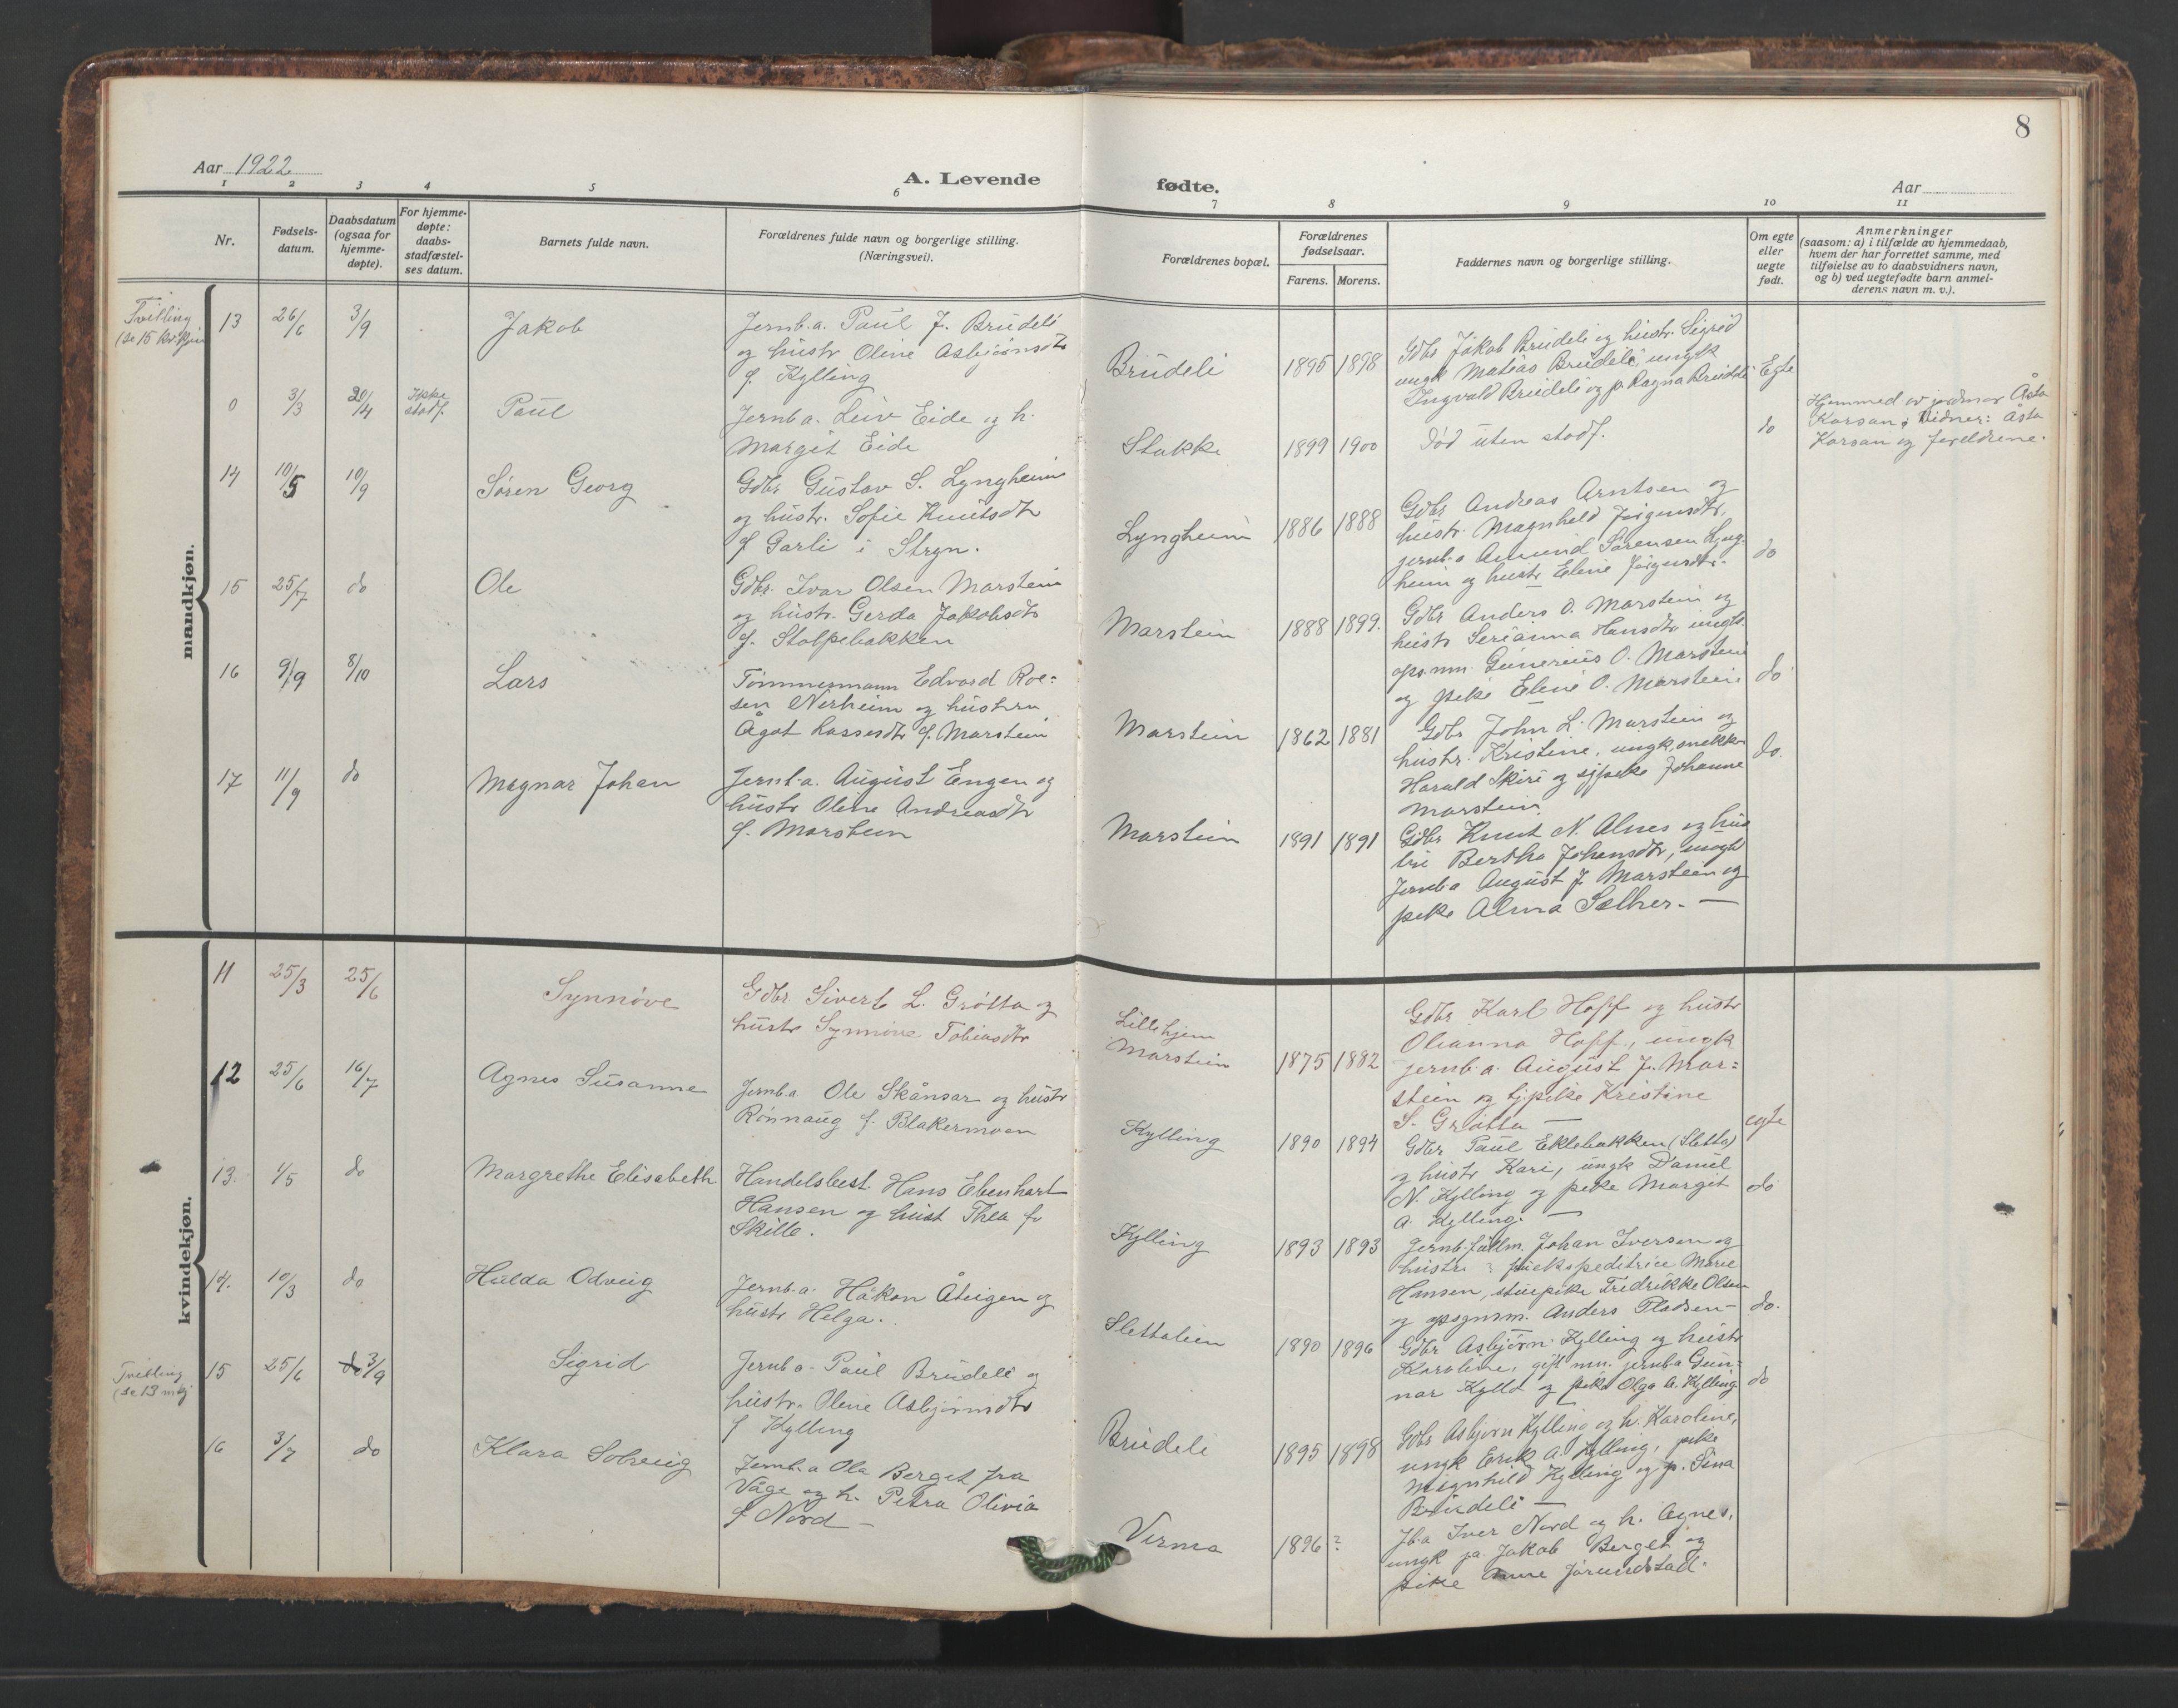 8
Aar 1922
A. Levende
fødte.
Aar
1 2 3 4 5 6 7 8 9 10 11
Nr.
Fødsels-
datum.
Daabsdatum
(ogsaa for
hjemme-
døpte).
For hjemme-
døpte:
daabs-
stadfæstel-
ses datum.
Barnets fulde navn.
Forældrenes fulde navn og borgerlige stilling.
(Næringsvei).
Forældrenes bopæl.
Forældrenes
fødselsaar.
Farens. Morens.
Faddernes navn og borgerlige stilling.
Om egte
eller
uegte
født.
Anmerkninger
(saasom: a) i tilfælde av hjemmedaab,
hvem der har forrettet samme, med
tilføielse av to daabsvidners navn,
og b) ved uegtefødte barn anmel-
derens navn m. v.).
mandkjøn.
Tvilling
(se 15 kv.kjøn
13 26/6 3/9 Jakob
Jernb.a. Paul J. Brudeli
og hustr Oline Asbjørnsdtr
f. Kylling
Brudeli 1895 1898
Gdbr Jakob Brudeli og hustr. Sigrid
ungk Matias Brudeli, ungk
Ingvald Brudeli og p. Ragna Brudeli
Egte
0 3/3 20/4 Ikke
stadf.
Paul
Jernb a. Leiv Eide og h.
Margit Eide
Stakke 1899 1900
Død uten stadf.
do
Hjemmed. av jordmor Åsta
Korsan. Vidner: Åsta
Korsan og foreldrene.
14 10/5 10/9 Søren Georg
Gdbr Gustav S. Lyngheim
og hustr. Sofie Knutsdtr
f Garli i Stryn.
Lyngheim 1886 1888
Gdbr Andreas Arntsen og
hustr. Magnhild Jørgensdtr,
jernb.a Amund Sørensen Lyng-
heim og hustr Eline Jørgensdtr.
do
15 25/7 do Ole
Gdbr. Ivar Olsen Marstein
og hustr. Gerda Jakobsdtr
f. Stolpebakken
Marstein 1888 1899.
Gdbr Anders O. Marstein og
hustr Serianna Hansdtr
ops.mm. Gunerius O. Marstein
og pike Eline O. Marstein
do
16 9/9 8/10 Lars
Tømmermann Edvard Roe-
sen Nerheim og hustru
Ågot Lassesdtr f. Marstein
Marstein 1862 1881
Gdbr John L. Marstein og
hustr. Kristine, ungk, snekker
Harald Skiri og Johanne
Marstein.
do.
17 11/9 do Magnar Johan
Jernb.a. August Engen og
hustr Oline Andreasdtr
f. Marstein
Marstein 1891 1891
Gdbr Knut N. Alnes og hus
tru Bertha Johansdtr,
Jernb a August J. Marstein og
pike Alma Sæther. —
kvindekjøn.
11 25/3 25/6 Synnöve
Gdbr Sivert L. Grötta og
hustr Synnöve Tobiasdtr
Lillehjem
Marstein 1875 1882
Gdbr Karl Hoff og hustr
Olianna Hoff, ungk
jernb.a. August J. Mar-
stein og tj.pike Kristine
S. Grötta —
egte
12 25/6 16/7 Agnes Susanne
Jernb.a Ole Skånsar og hustr
Rönnaug f. Blakermoen
Kylling 1890 1894
Gdbr Paul Eklebakken (Sletta)
og hustr Kari, ungk Daniel
N. Kylling og pike Margit
A. Kylling. —
do
13. 1/5 do Margrethe Elisabeth
Handelsbest. Hans Ebenhart
Hansen og hust Thea f.
Skille.
Kylling 1893 1893
Jernb.fullm. Johan Iversen og
hustru, Marie
Hansen, stuepike Fredrikke Olsen
og opsynsm. Anders Pladsen —
do.
14. 10/3 do Hulda Odveig
Jernb.a. Håkon Åteigen og
hustr Helga.
Slettalien 1890 1896
Gdbr Asbjörn Kylling og hustr
Karoline, gift mn. jernb.a Gun-
nar Kylld og pike Olga A. Kylling
do
Tvilling
(se 13 mkj
15 25/6 do 3/9 Sigrid
Jernb a. Paul Brudeli og
hustr. Oline Asbjörnsdtr
f Kylling
Brudeli 1895 1898
Gdbr Asbjörn Kylling og h. Karoline,
ungk Erik A. Kylling, pike
Magnhild Kylling og p. Sina
Brudeli —
16 3/7 do Klara Solveig
Jernb.a Ola Berget fra
Våge og h. Petra Olivia
f Nord —
Verma 1896 ?
Jb.a Iver Nord og h. Agnes,
ungk ja. Jakob Berget og
pike Anne Jörundstad.